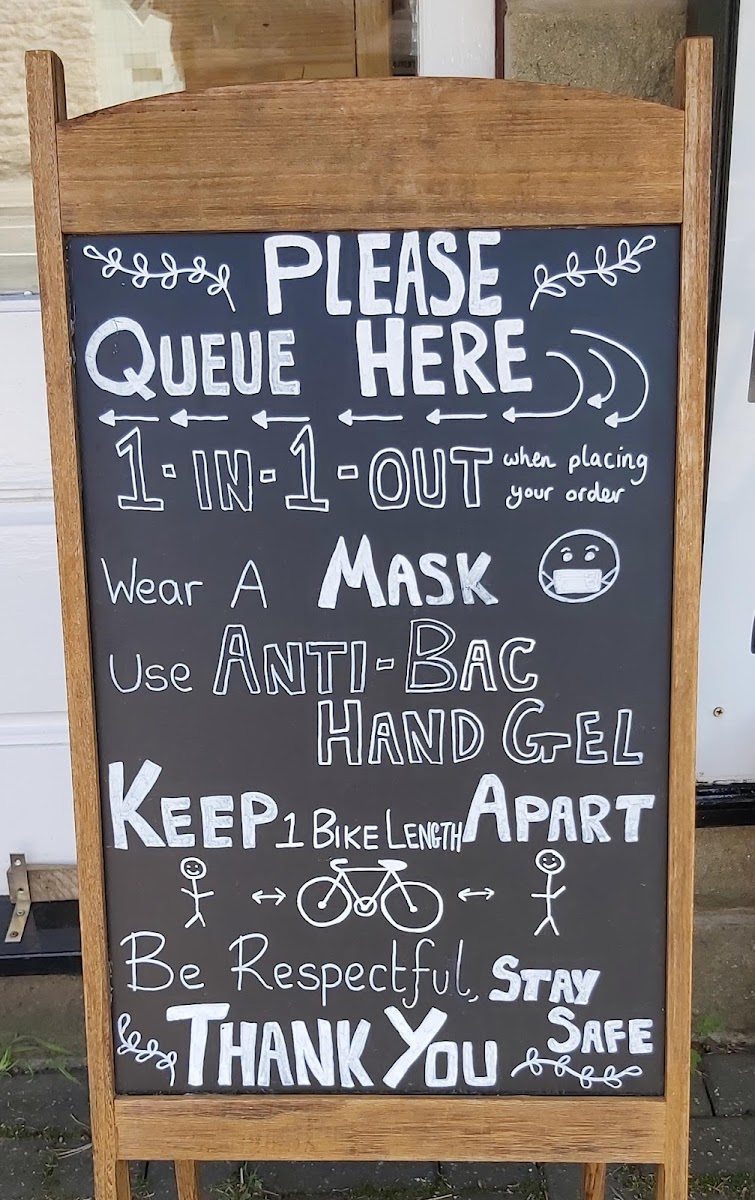 PLEASE
QUEUE HERE
1-IN-1-OUT when placing
your order
Wear A MASK
Use ANTI-BAC
HAND GEL
KEEP 1 BIKE LENGTH APART
Be Respectful, STAY
SAFE
THANK YOU